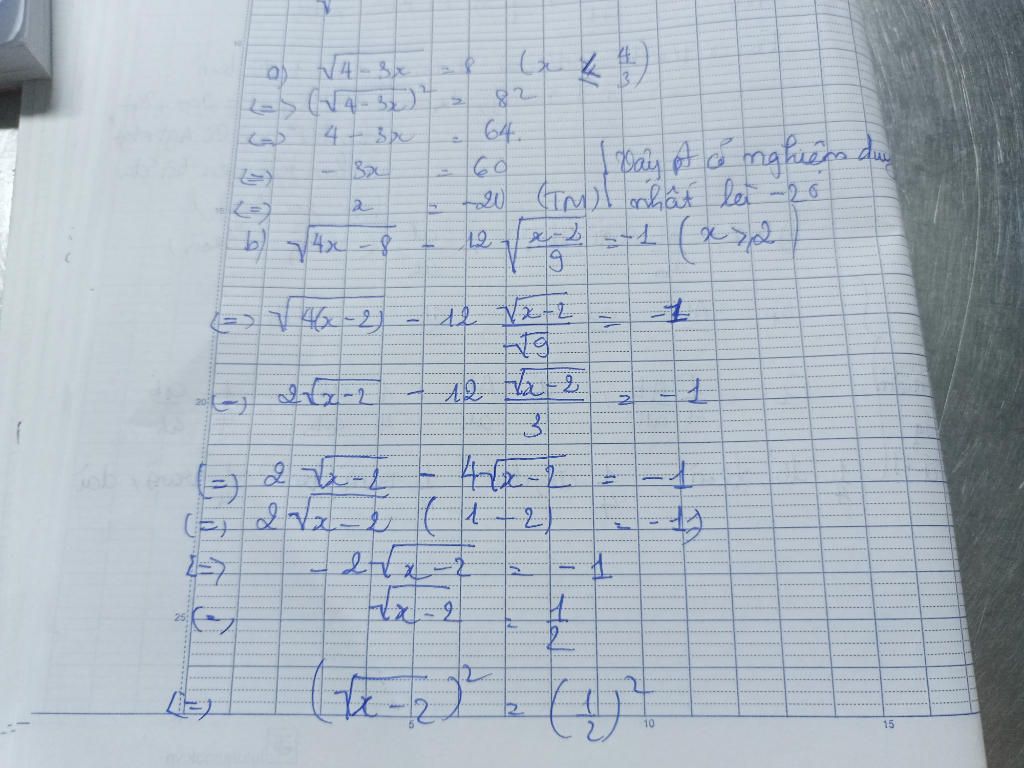 a) √(4 - 3x) = 8 (x ≤ 4/3)
<=> (√(4 - 3x))² = 8²
<=> 4 - 3x = 64.
<=> - 3x = 60
<=> x = -20 (TM)
Vậy pt có nghiệm duy
nhất là -20
b) √(4x - 8) - 12 √((x-2)/9) = -1 (x ≥ 2)
<=> √(4(x-2)) - 12 √(x-2)/√9 = -1
<=> 2√(x-2) - 12 √(x-2)/3 = -1
20
<=> 2√(x-2) - 4√(x-2) = -1
<=> 2√(x-2) (1 - 2) = -1
<=> - 2√(x-2) = -1
<=> √(x-2) = 1/2
25
<=> (√(x-2))² = (1/2)²
5 10 15